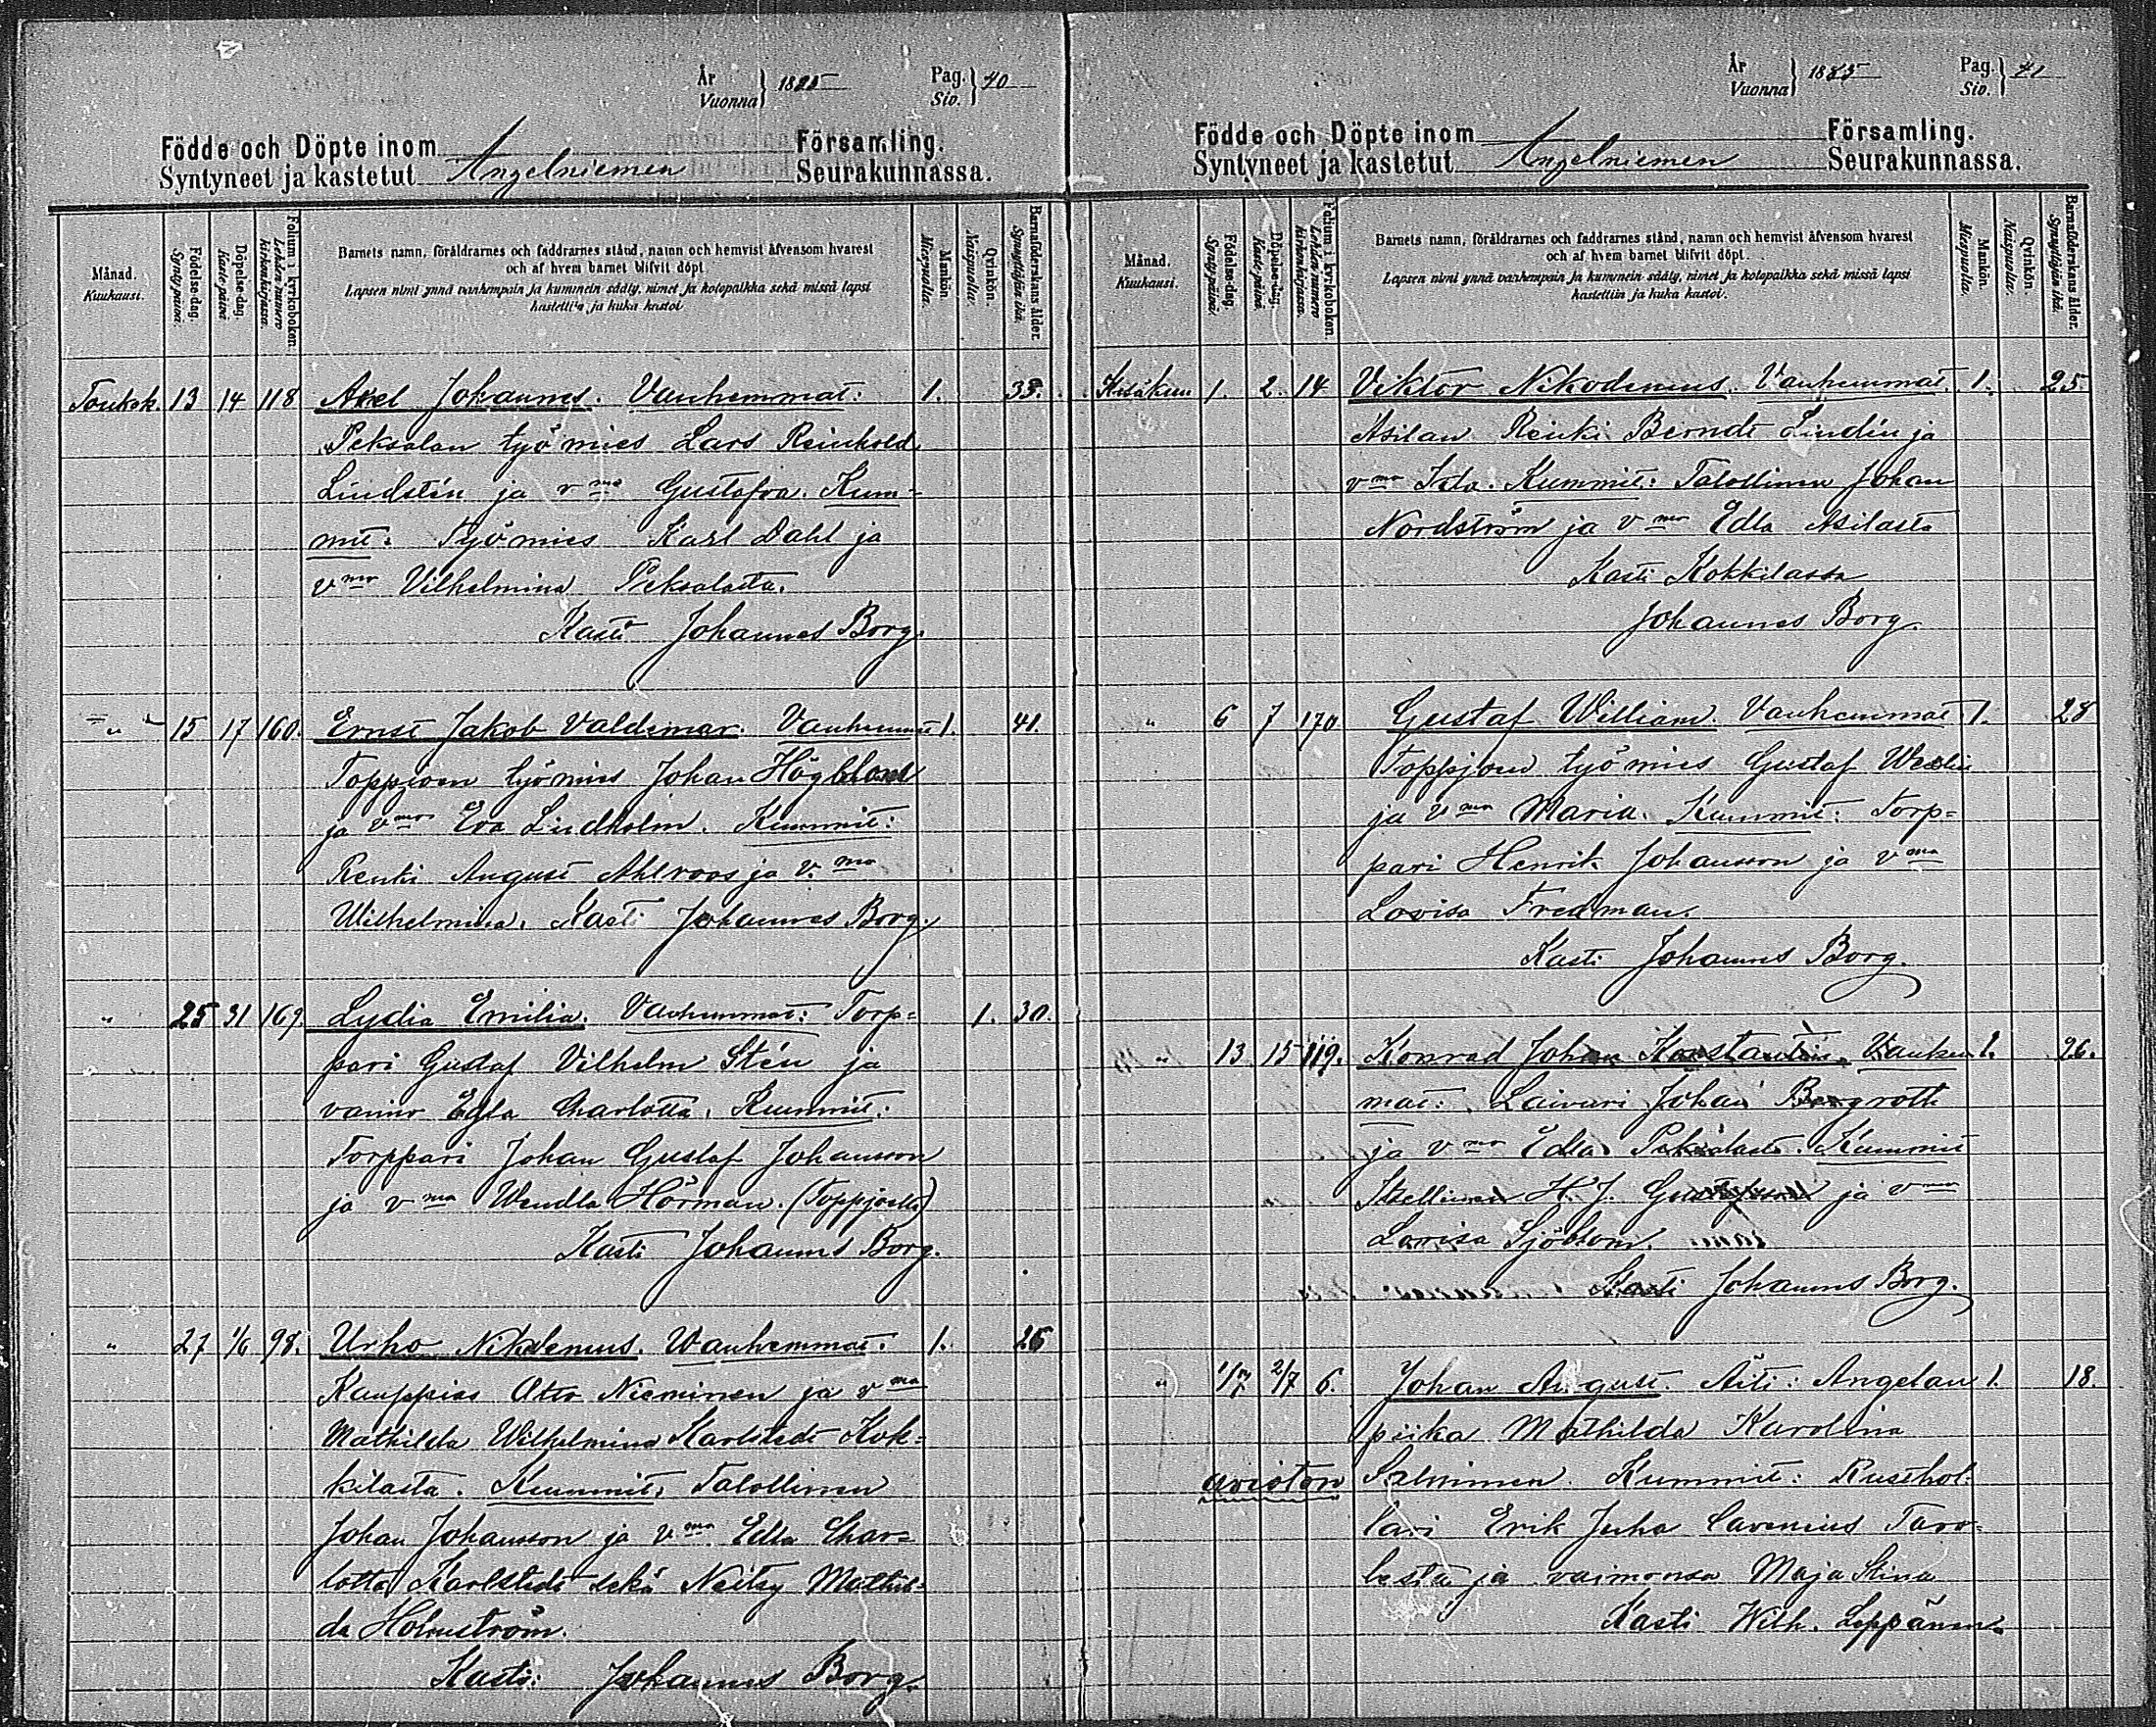 År
Vuonna } 1885
Pag.
Siv. } 40
Födde och Döpte inom Församling.
Syntyneet ja kastetut Angelniemen Seurakunnassa.
Månad.
Kuukausi.
Födelse-dag.
Syntypäivä.
Döpelse-dag.
Kaste-päivä.
Folium i kyrkoboken.
Lehden numero
kirkonkirjassa.
Barnets namn, föräldrarnes och faddrarnes stånd, namn och hemvist äfvensom hvarest
och af hvem barnet blifvit döpt
Lapsen nimi ynnä vanhempain ja kummein sääty, nimet ja kotopaikka sekä missä lapsi
kastettiin ja kuka kastoi
Mankön.
Miespuolia.
Qvinkön.
Naispuolia.
Barnaföderskans ålder.
Synnyttäjän ikä.
Toukok. 13 14 118 Axel Johannes. Vanhemmat: 1. 33.
Peksalan työmies Lars Reinhold
Lindstén ja vmo Gustafva. Kum=
mit: Työmies Karl Dahl ja
vmo Vilhelmina Peksalasta.
Kasti Johannes Borg.
" 15 17 160. Ernst Jakob Valdemar. Vanhemmat 1. 41.
Toppjoen työmies Johan Högblom
ja vmo Eva Lindholm. Kummit:
Renki August Ahlroos ja v.mo
Wilhelmina. Kasti Johannes Borg.
" 25 31 169. Lydia Emilia. Vanhemmat: Torp= 1. 30.
pari Gustaf Vilhelm Stén ja
vaimo Edla Charlotta. Kummit:
Torppari Johan Gustaf Johansson
ja vmo Wendla Hörman. (Toppjoelta)
Kasti Johannes Borg.
" 27 1/6 98. Urho Nikodemus. Wanhemmat. 1. 26
Kauppias Otto Nieminen ja vmo
Mathilda Wilhelmina Karlstedt Kok=
kilasta. Kummit: Talollinen
Johan Johansson ja vmo Edla Char=
lotta Karlstedt sekä Neitsy Mathil=
da Holmström.
Kasti: Johannes Borg.
År
Vuonna } 1885
Pag.
Siv. } 41
Födde och Döpte inom Församling.
Syntyneet ja kastetut Angelniemen Seurakunnassa.
Månad.
Kuukausi.
Födelse-dag.
Syntypäivä.
Döpelse-dag.
Kaste-päivä.
Folium i kyrkoboken.
Lehden numero
kirkonkirjassa.
Barnets namn, föräldrarnes och faddrarnes stånd, namn och hemvist äfvensom hvarest
och af hvem barnet blifvit döpt.
Lapsen nimi ynnä vanhempain ja kummein sääty, nimet ja kotopaikka sekä missä lapsi
kastettiin ja kuka kastoi.
Mankön.
Miespuolia.
Qvinkön.
Naispuolia.
Barnaföderskans ålder.
Synnyttäjän ikä.
Kesäkuu 1. 2. 14 Viktor Nikodemus. Vanhemmat 1. 25
Asilan Renki Berndt Lindén ja
vmo Ida. Kummit: Talollinen Johan
Nordström ja vmo Edla Asilasta
Kasti Kokkilassa
Johannes Borg.
" 6 7 170 Gustaf William. Vanhemmat 1. 28
Toppjoen työmies Gustaf Weslin
ja vmo Maria. Kummit: Torp=
pari Henrik Johansson ja vmo
Lovisa Fredman.
Kasti Johannes Borg.
" 13 15 119. Konrad Johan Konstantin. Vanhem 1. 26.
mat: Laivuri Johan Bergroth
ja vmo Edla Peksalasta. Kummit
Itsellinen H. J. Gustafsson ja vmo
Lovisa Sjöblom.
Kasti Johannes Borg.
" 1/7 2/7 6. Johan August. Äiti: Angelan 1. 18.
piika Mathilda Karolina
avioton Salminen. Kummit: Rusthol=
lari Erik Juha Cavenius Taro=
lesta ja vaimonsa Maja Stina
Kasti Wilh. Leppänen.